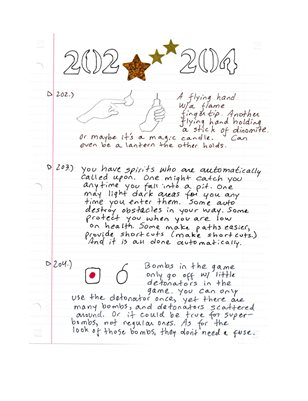 202 204
202.) A flying hand
w/a flame
fingertip. Another
flying hand holding
a stick of dinomite,
or maybe it's a magic candle. Can
even be a lantern the other holds.
203.) you have spirits who are automatically
called upon. One might catch you
anytime you fall into a pit. One
may light dark areas for you any
time you enter them. Some auto
destroy obstacles in your way. Some
protect you when you are low
on health. Some make paths easier,
provide shortcuts (make shortcuts).
And it is all done automatically.
204.) Bombs in the game
only go off w/ little
detonators in the
game. you can only
use the detonator once, yet there are
many bombs, and detonators scattered
around. Or it could be true for super-
bombs, not regular ones. As for the
look of those bombs, they don't need a fuse.